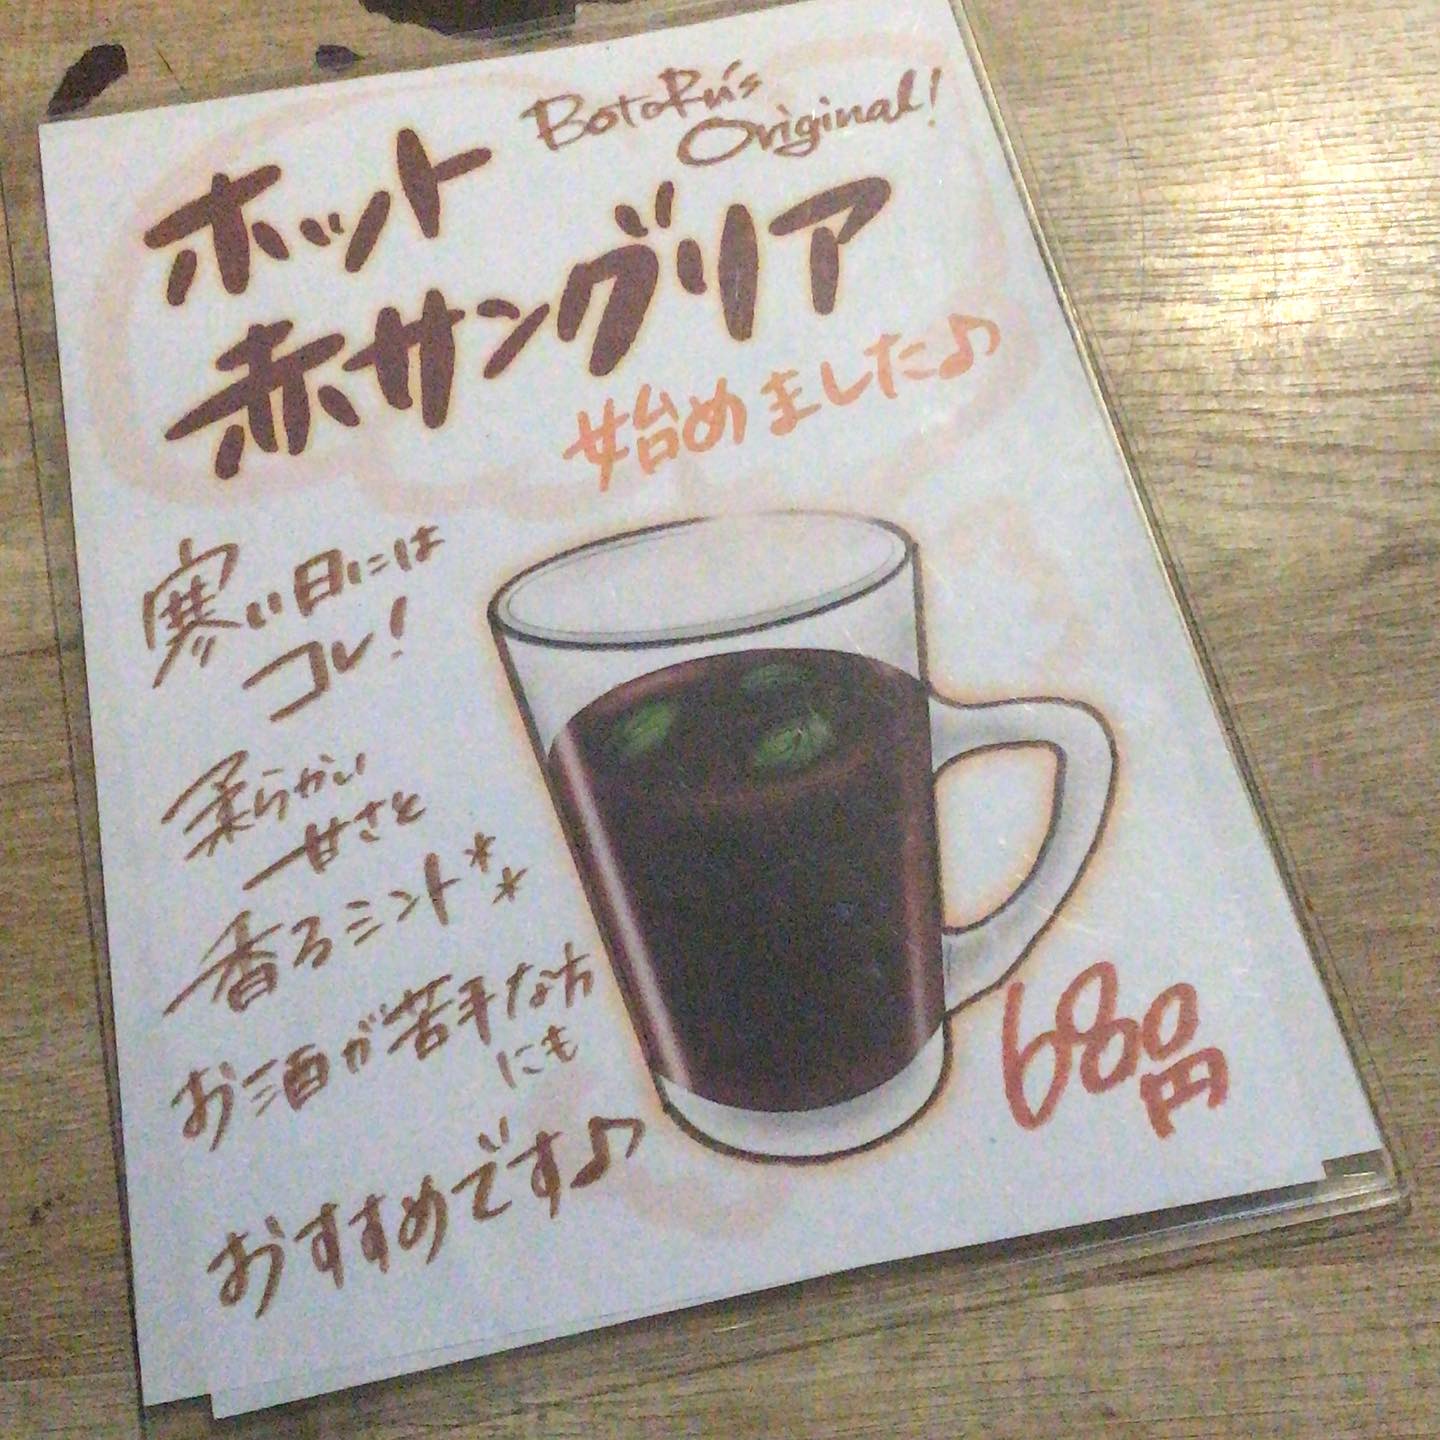 BotoRu's
Original!
ホット
赤サングリア
始めました♪
寒い日には
コレ!
柔らかい
甘さと
香るミント**
お酒が苦手な方
にも
おすすめです♪
680
円